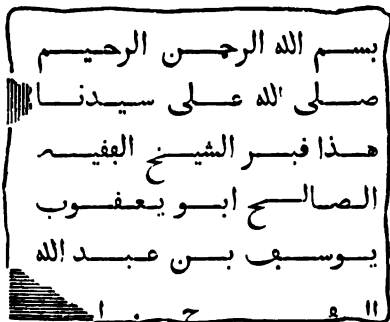 بسم الله الرحمن الرحيم
صلى الله على سيدنا
هذا قبر الشيخ الفقيه
الصالح ابو يعقوب
يوسف بن عبد الله